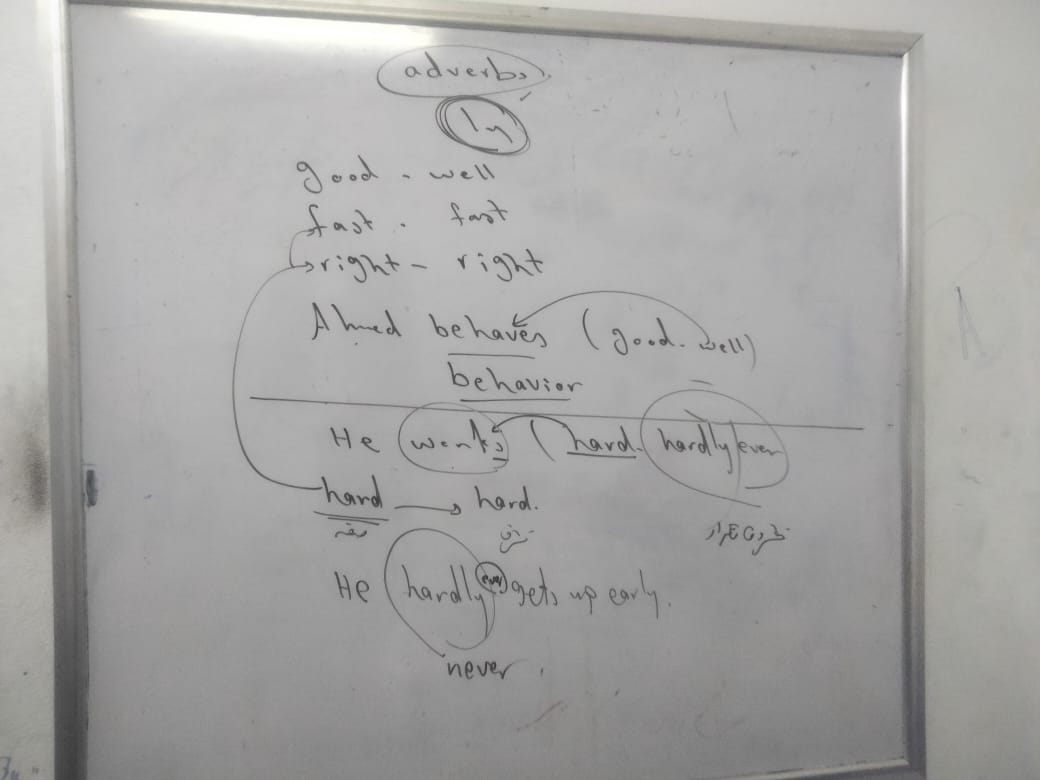 adverbs
ly
good - well
fast - fast
right - right
Ahmed behaves (good - well)
behavior
He works (hard - hardly/ever
hard → hard.
صفة ظرف ظرف تكرار
He hardly ever gets up early.
never.